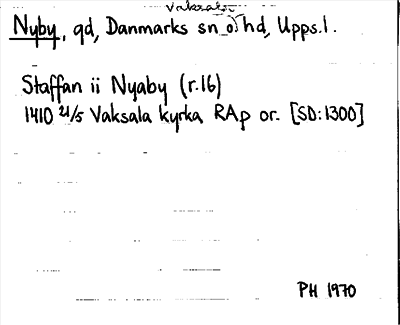 Vaksala
Nyby, gd, Danmarks sn o. hd, Upps.l.
Staffan ii Nyaby (r.16)
1410 21/5 Vaksala kyrka RAp or. [SD:1300]
PH 1970